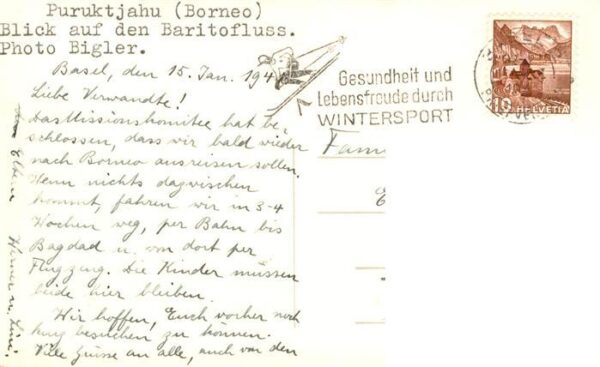 Puruktjahu (Borneo)
Blick auf den Baritofluss.
Photo Bigler.
Basel, den 15. Jan. 194
Liebe Verwandte!
Das Missionskomitee hat be-
schlossen, dass wir bald wieder
nach Borneo ausreisen sollen.
Wenn nichts dazwischen
kommt, fahren wir in 3-4
Wochen weg, per Bahn bis
Bagdad u. von dort per
Flugzeug. Die Kinder müssen
beide hier bleiben.
Wir hoffen, Euch vorher noch
kurz besuchen zu können.
Viele Grüsse an alle, auch von den
Eltern Werner u. Lini.
Gesundheit und
Lebensfreude durch
WINTERSPORT
10 HELVETIA
Fam